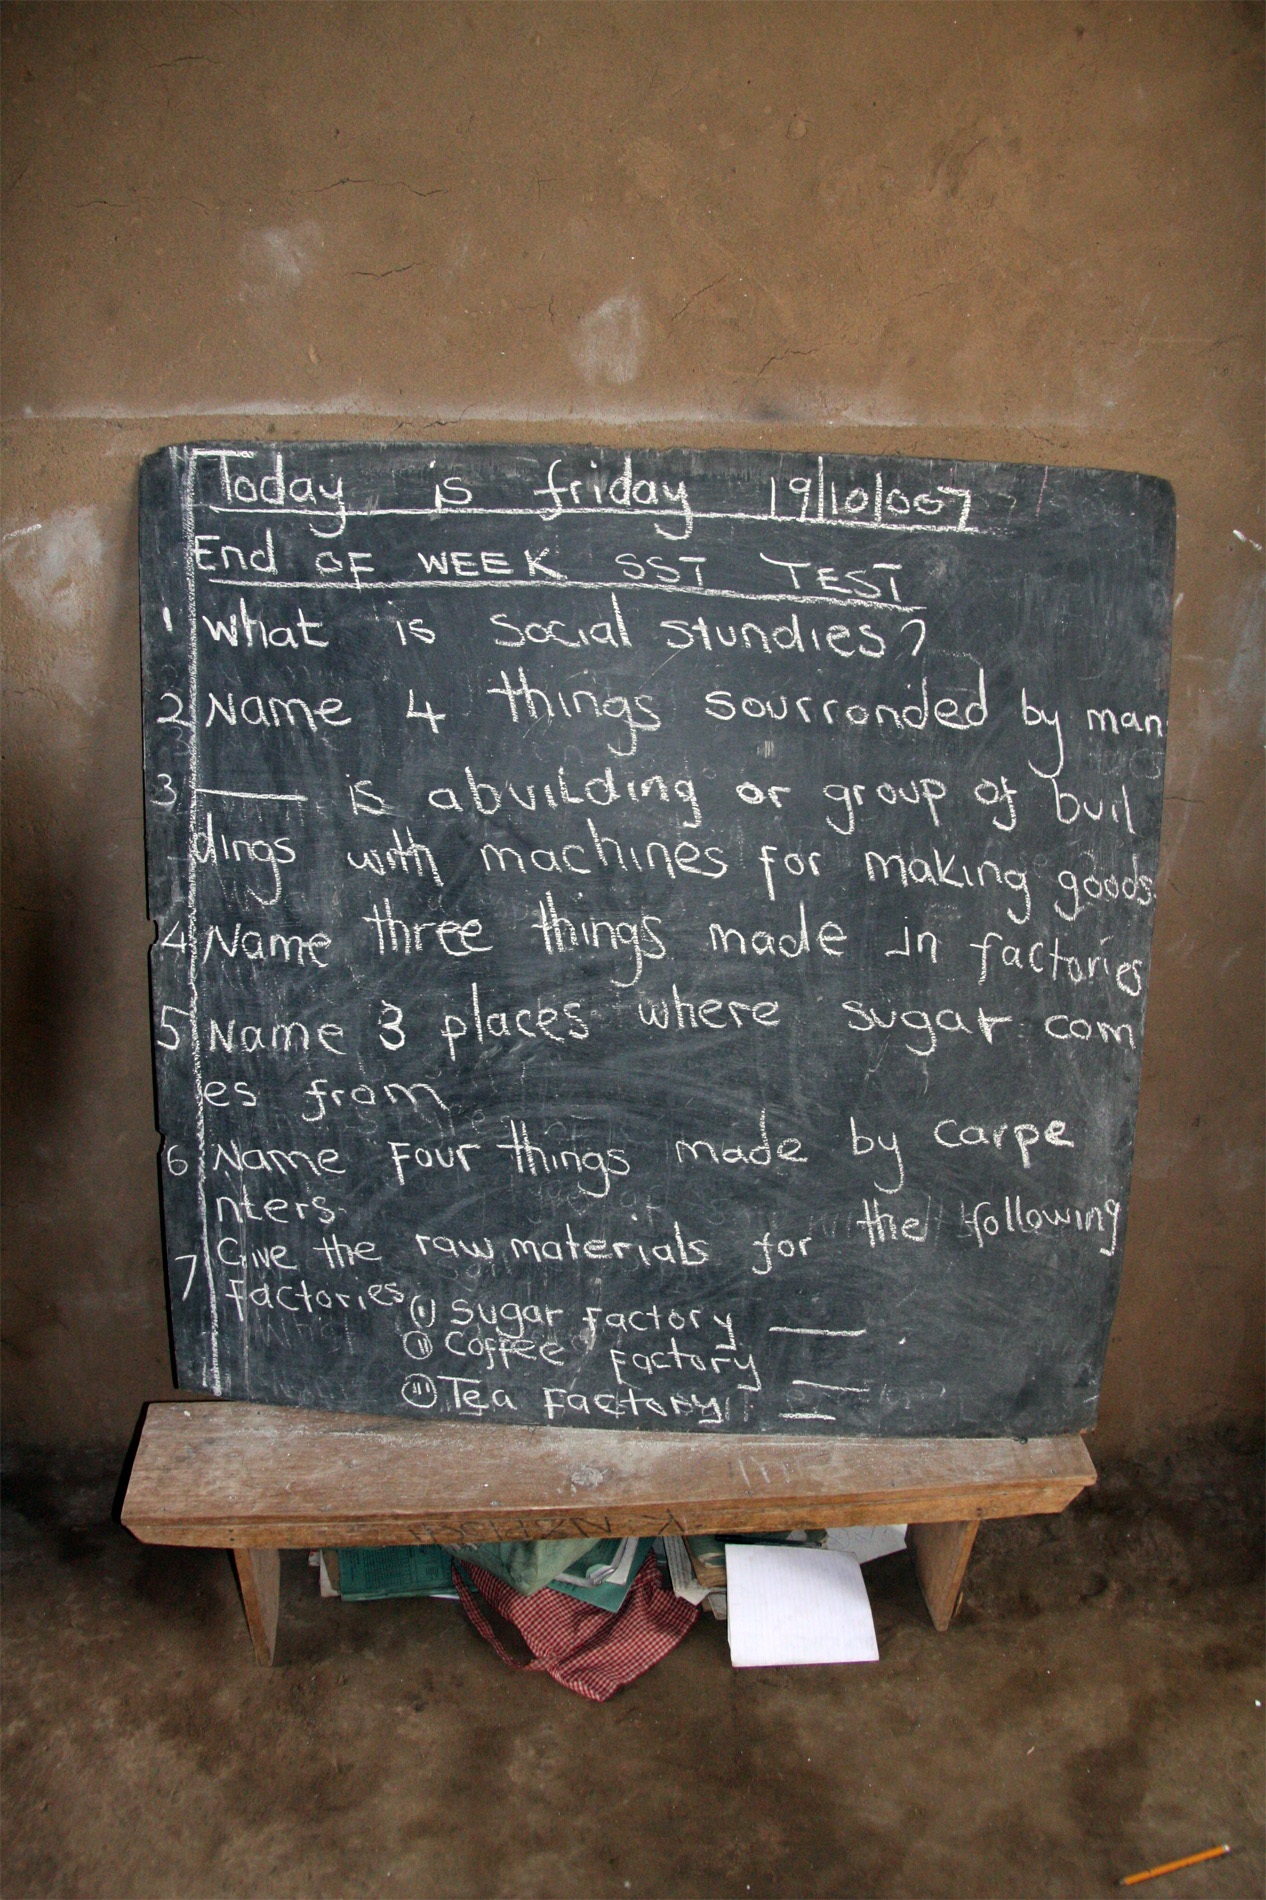 Today is friday 19/10/007
End OF WEEK SST TEST
1 What is Social stundies?
2 Name 4 things sourronded by man
3 ____ is abuilding or group of buil
dings with machines for making goods
4 Name three things made in factories
5 Name 3 places where sugar com
es from
6 Name Four things made by carpe
nters.
7 Give the raw materials for the following
factories (i) Sugar Factory ____
(ii) Coffee Factory ____
(iii) Tea Factory ____